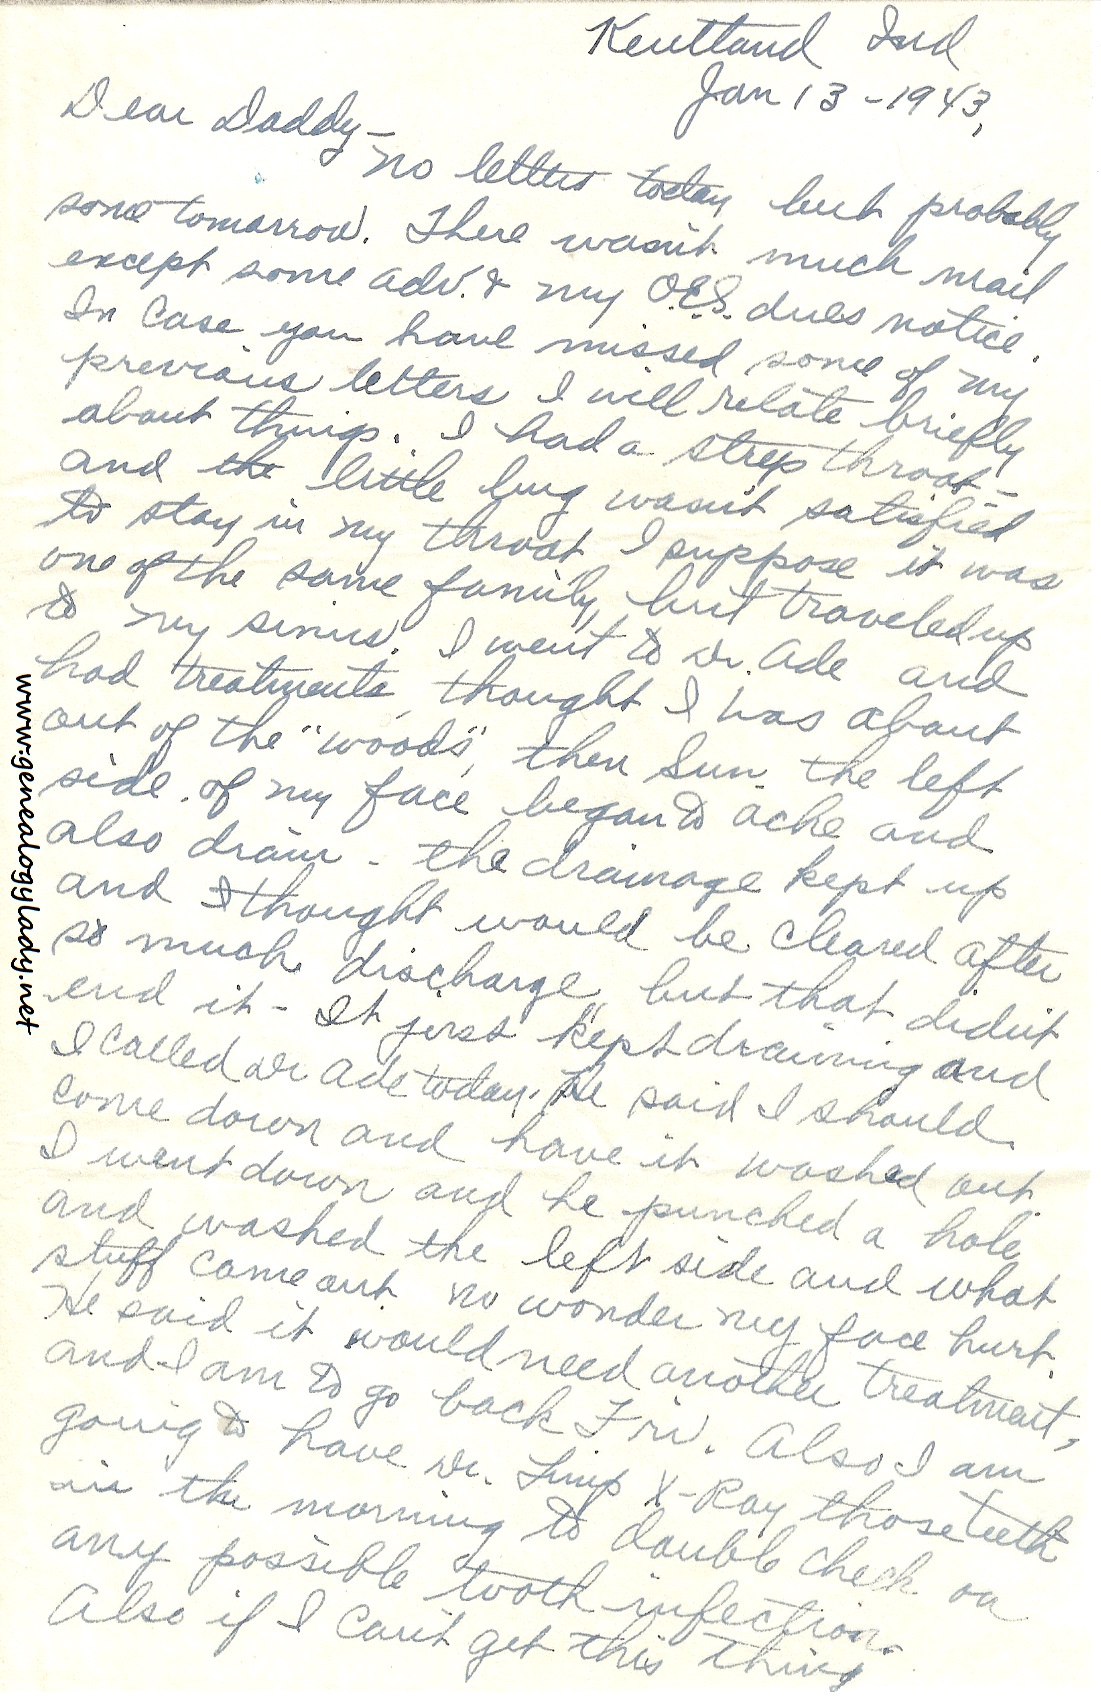 Kentland Ind
Jan 13 - 1943,
Dear Daddy -
No letters today but probably
some tomorrow. There wasn't much mail
except some adv. & my O.E.S. dues notice.
In case you have missed some of my
previous letters I will relate briefly
about things. I had a strep throat -
and the little bug wasn't satisfied
to stay in my throat I suppose it was
one of the same family, but traveled up
to my sinus. I went to Dr. Ade and
had treatments, thought I was about
out of the "woods", then Sun the left
side of my face began to ache and
also drain - the drainage kept up
and I thought would be cleared after
so much discharge, but that didn't
end it - It just kept draining and
I called Dr Ade today. He said I should
come down and have it washed out.
I went down and he punched a hole
and washed the left side and what
stuff came out no wonder my face hurt.
He said it would need another treatment,
and I am to go back Fri. Also I am
going to have Dr. X-Ray those teeth
in the morning to double check on
any possible tooth infection.
Also if I can't get this thing
www.genealogylady.net